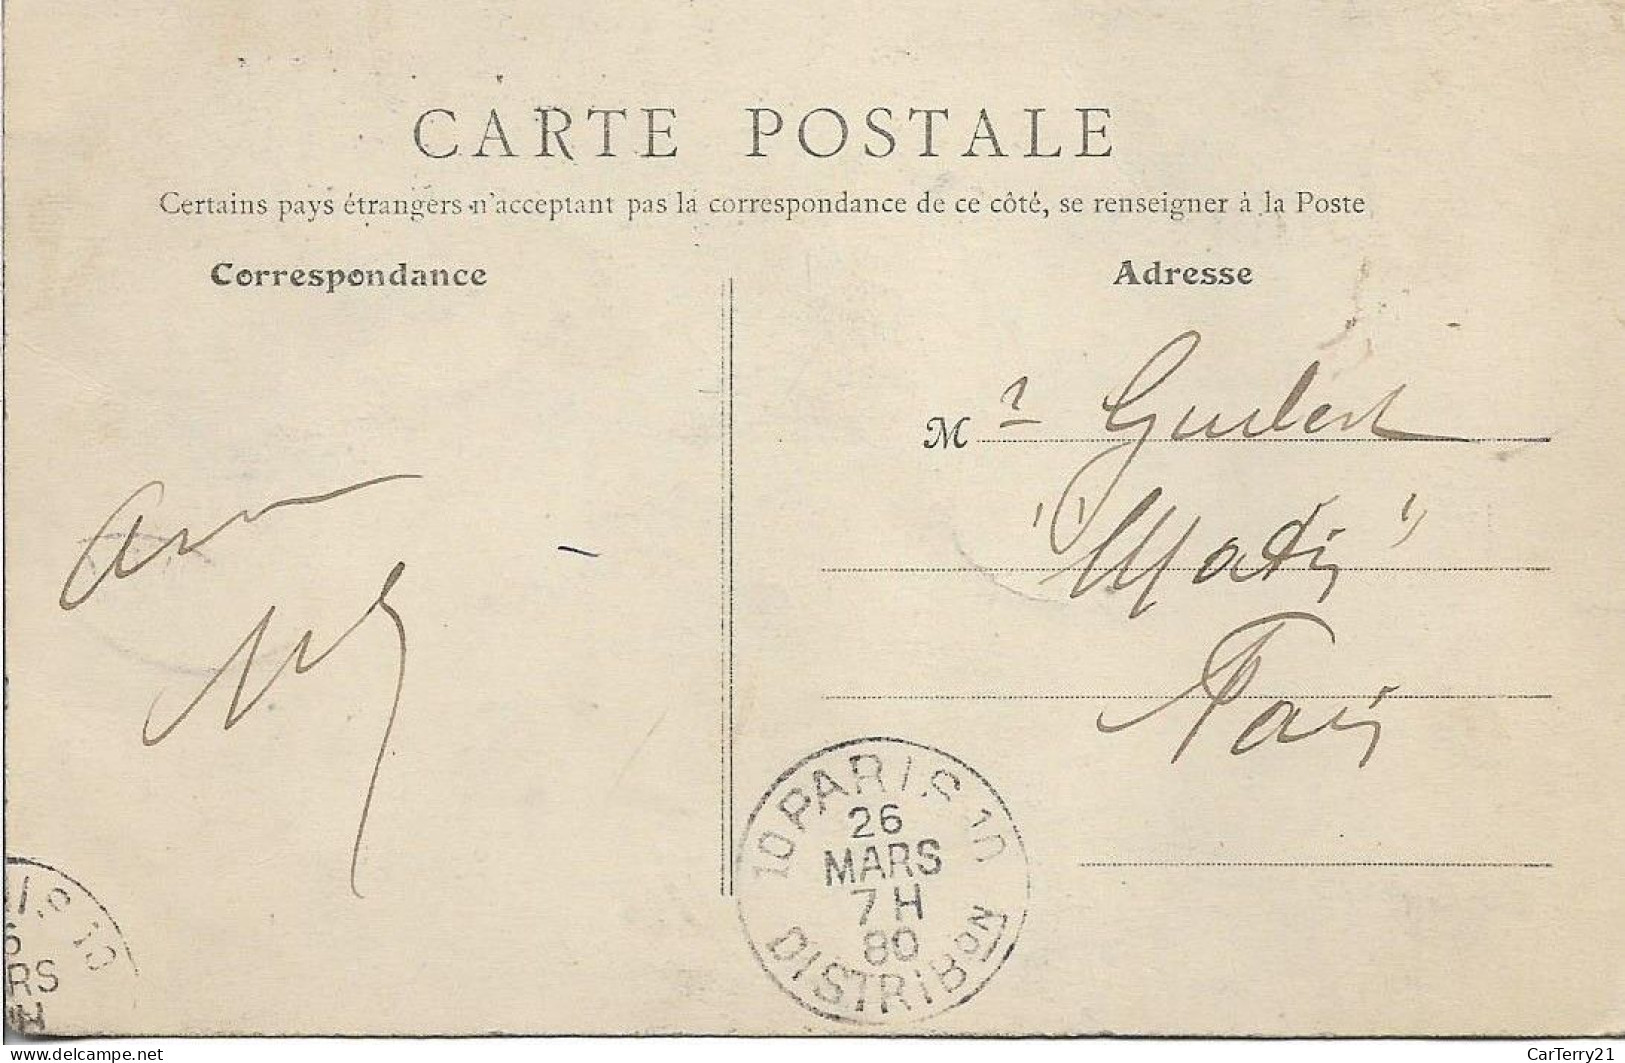 CARTE POSTALE
Certains pays étrangers n'acceptant pas la correspondance de ce côté, se renseigner à la Poste
Correspondance
Adresse
M r
"Matin"
Paris
10 PARIS 10
26
MARS
7 H
80
DISTRIBON
I.S 10
6
RS
H
www.delcampe.net
CarTerry21